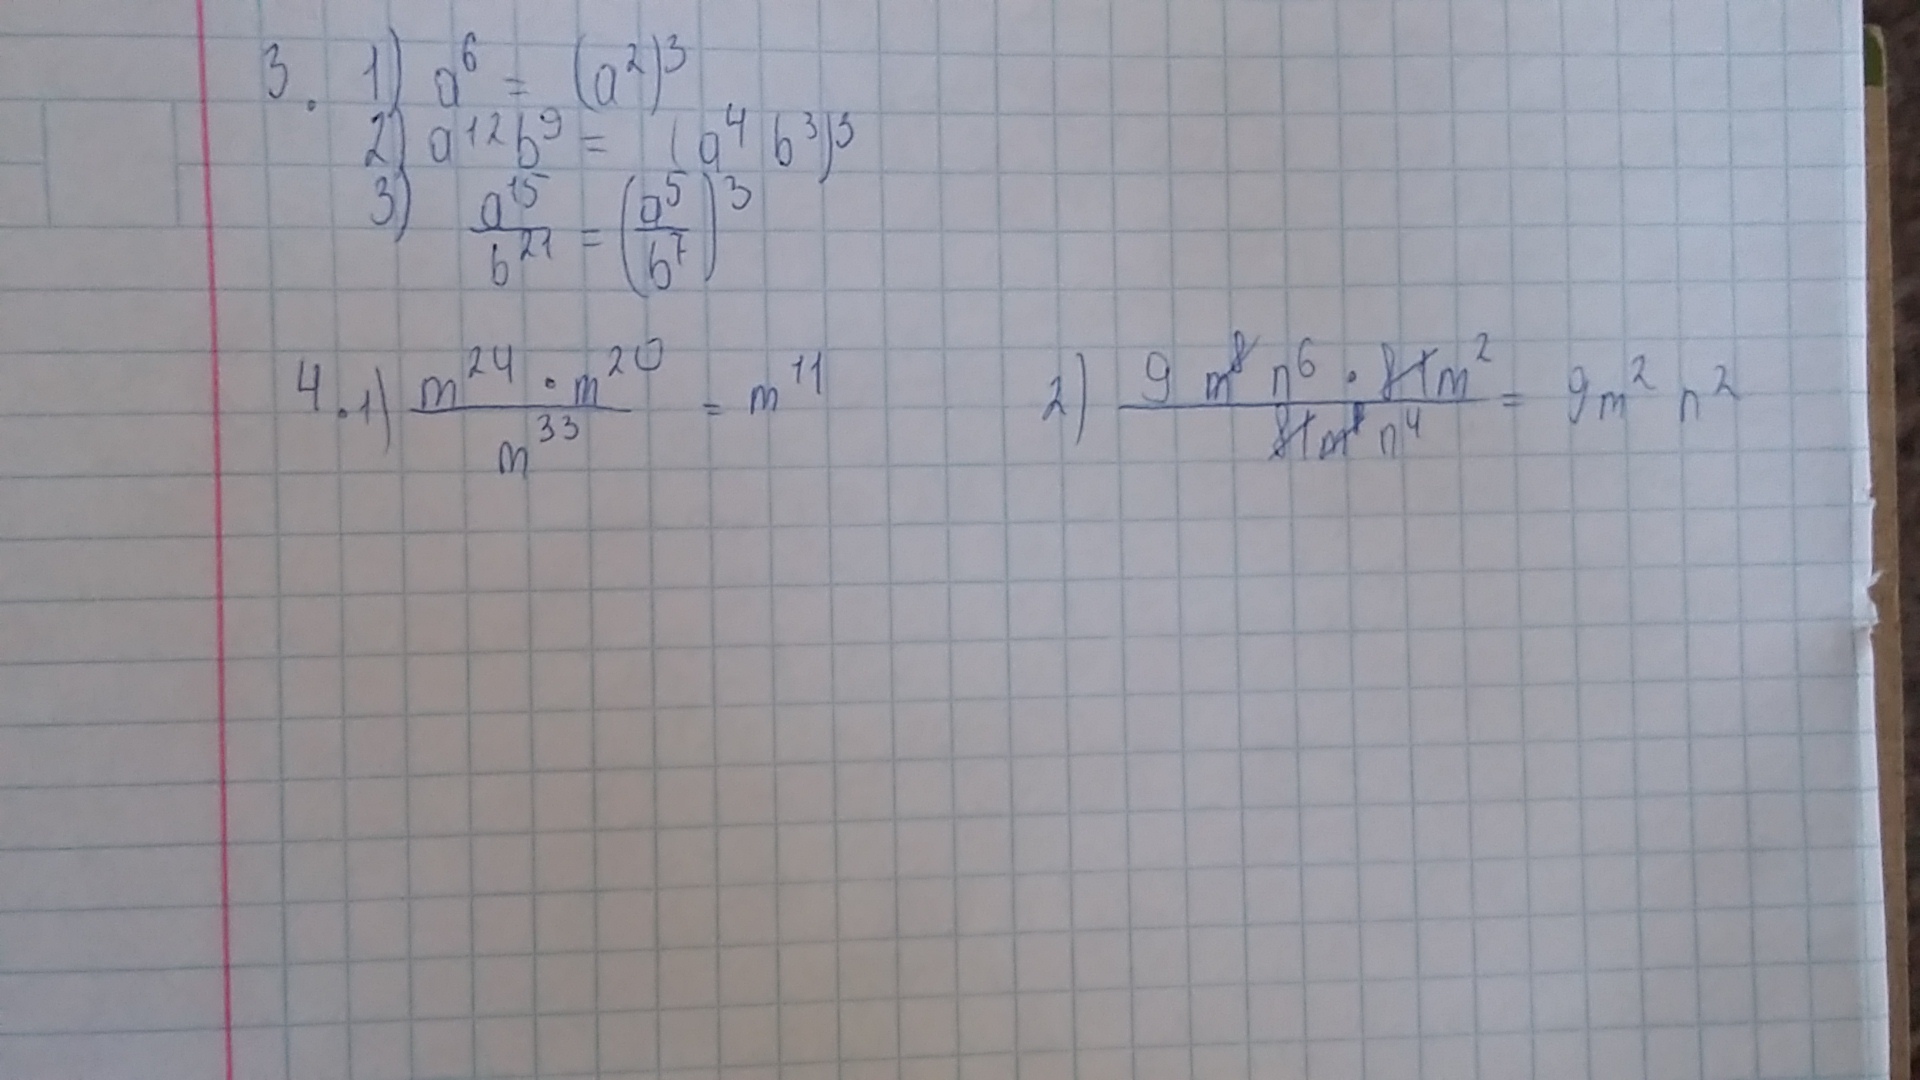 3. 1) a⁶ = (a²)³
2) a¹²b⁹ = (a⁴ b³)³
3) a¹⁵/b²¹ = (a⁵/b⁷)³
4. 1) m²⁴ · m²⁰ / m³³ = m¹¹
2) 9 m⁸ n⁶ · 81m² / 81m⁸ n⁴ = 9m² n²